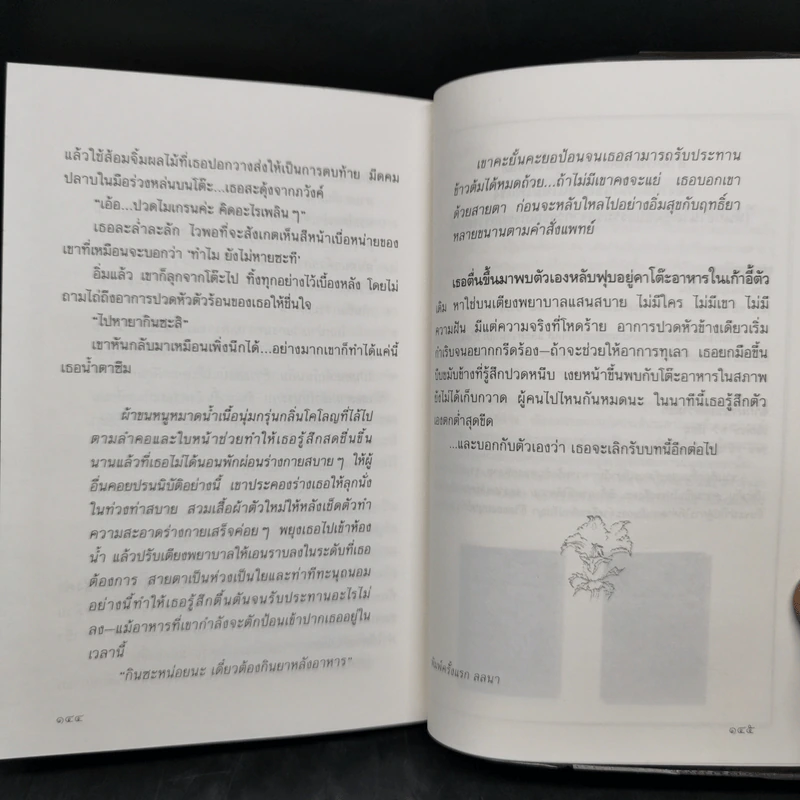 แล้วใช้ส้อมจิ้มผลไม้ที่เธอปอกวางส่งให้เป็นการตบท้าย มีดคม
ปลาบในมือร่วงหล่นบนโต๊ะ...เธอสะดุ้งจากภวังค์
"เอ้อ...ปวดไมเกรนค่ะ คิดอะไรเพลิน ๆ"
เธอละล่ำละลัก ไวพอที่จะสังเกตเห็นสีหน้าเบื่อหน่ายของ
เขาที่เหมือนจะบอกว่า 'ทำไม ยังไม่หายซะที'
อิ่มแล้ว เขาก็ลุกจากโต๊ะไป ทิ้งทุกอย่างไว้เบื้องหลัง โดยไม่
ถามไถ่ถึงอาการปวดหัวตัวร้อนของเธอให้ชื่นใจ
"ไปหายากินซะสิ"
เขาหันกลับมาเหมือนเพิ่งนึกได้...อย่างมากเขาก็ทำได้แค่นี้
เธอน้ำตาซึม
ผ้าขนหนูหมาดน้ำเนื้อนุ่มกรุ่นกลิ่นโคโลญที่ไล้ไป
ตามลำคอและใบหน้าช่วยทำให้เธอรู้สึกสดชื่นขึ้น
นานแล้วที่เธอไม่ได้นอนพักผ่อนร่างกายสบาย ๆ ให้ผู้
อื่นคอยปรนนิบัติอย่างนี้ เขาประคองร่างเธอให้ลุกนั่ง
ในท่วงท่าสบาย สวมเสื้อผ้าตัวใหม่ให้หลังเช็ดตัวทำ
ความสะอาดร่างกายเสร็จค่อย ๆ พยุงเธอไปเข้าห้อง
น้ำ แล้วปรับเตียงพยาบาลให้เอนราบลงในระดับที่เธอ
ต้องการ สายตาเป็นห่วงเป็นใยและท่าทีทะนุถนอม
อย่างนี้ทำให้เธอรู้สึกตื้นตันจนรับประทานอะไรไม่
ลง—แม้อาหารที่เขากำลังจะตักป้อนเข้าปากเธออยู่ใน
เวลานี้
"กินซะหน่อยนะ เดี๋ยวต้องกินยาหลังอาหาร"
๑๔๔
เขาคะยั้นคะยอป้อนจนเธอสามารถรับประทาน
ข้าวต้มได้หมดถ้วย...ถ้าไม่มีเขาคงจะแย่ เธอบอกเขา
ด้วยสายตา ก่อนจะหลับใหลไปอย่างอิ่มสุขกับฤทธิ์ยา
หลายขนานตามคำสั่งแพทย์
เธอตื่นขึ้นมาพบตัวเองหลับฟุบอยู่คาโต๊ะอาหารในเก้าอี้ตัว
เดิม หาใช่บนเตียงพยาบาลแสนสบาย ไม่มีใคร ไม่มีเขา ไม่มี
ความฝัน มีแต่ความจริงที่โหดร้าย อาการปวดหัวข้างเดียวเริ่ม
กำเริบจนอยากกรีดร้อง—ถ้าจะช่วยให้อาการทุเลา เธอยกมือขึ้น
บีบขมับข้างที่รู้สึกปวดหนึบ เงยหน้าขึ้นพบกับโต๊ะอาหารในสภาพ
ยังไม่ได้เก็บกวาด ผู้คนไปไหนกันหมดนะ ในนาทีนี้เธอรู้สึกตัว
เองตกต่ำสุดขีด
...และบอกกับตัวเองว่า เธอจะเลิกรับบทนี้อีกต่อไป
พิมพ์ครั้งแรก ลลนา
๑๔๕